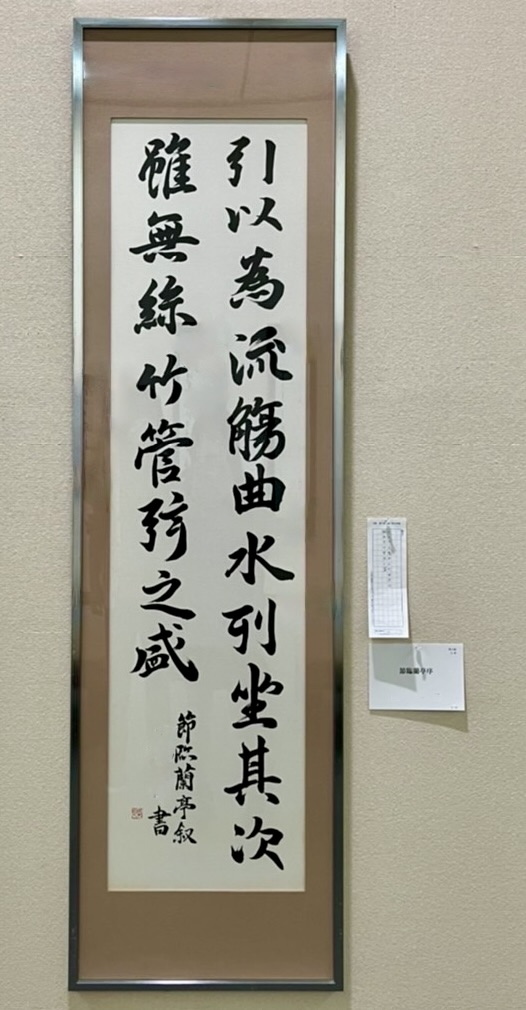 引以為流觴曲水列坐其次
雖無絲竹管弦之盛
節臨蘭亭叙
書
節臨蘭亭序